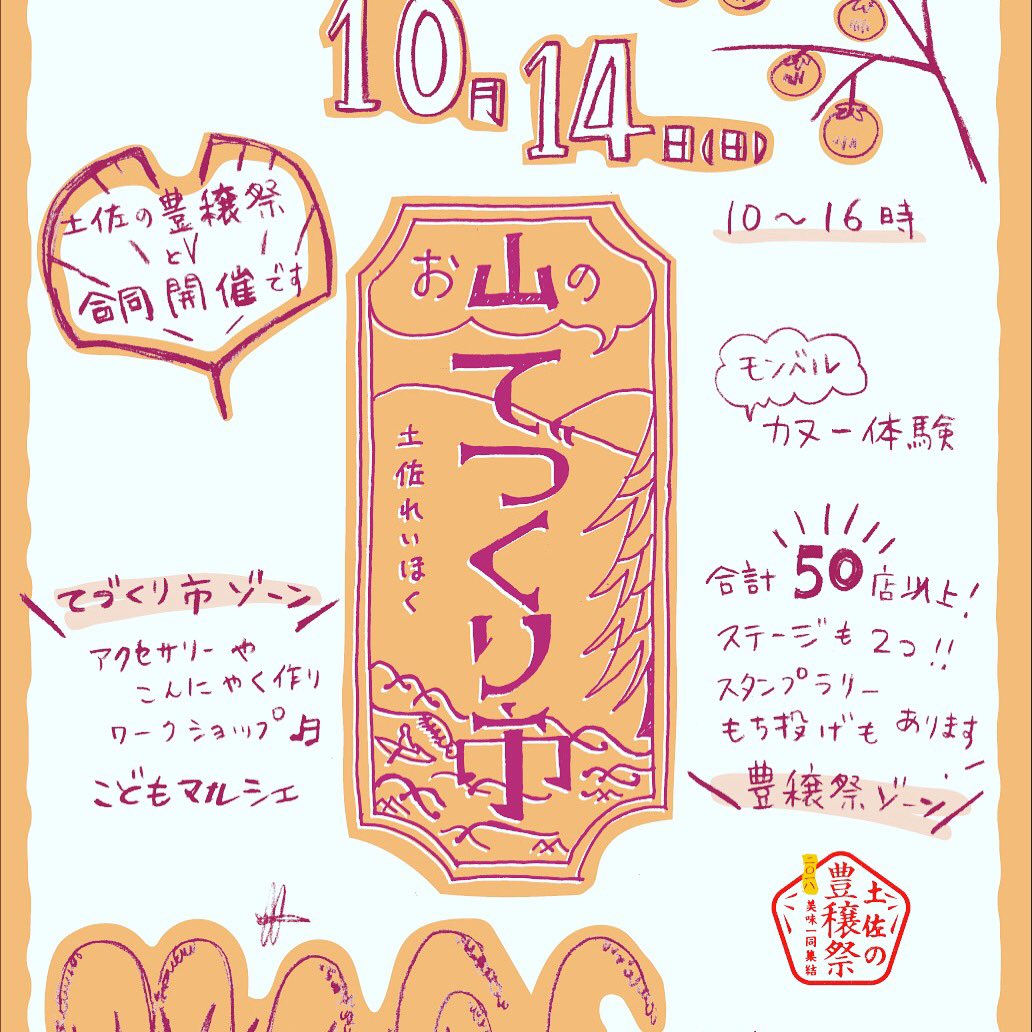 10月14日(日)
10〜16時
土佐の豊穣祭
と
合同開催です
お山の
てづくり市
土佐れいほく
モンベル
カヌー体験
てづくり市ゾーン
アクセサリーや
こんにゃく作り
ワークショップ♫
こどもマルシェ
合計50店以上!
ステージも2つ!!
スタンプラリー
もち投げもあります
豊穣祭ゾーン
二〇一八
土佐の
豊穣祭
美味一同集結